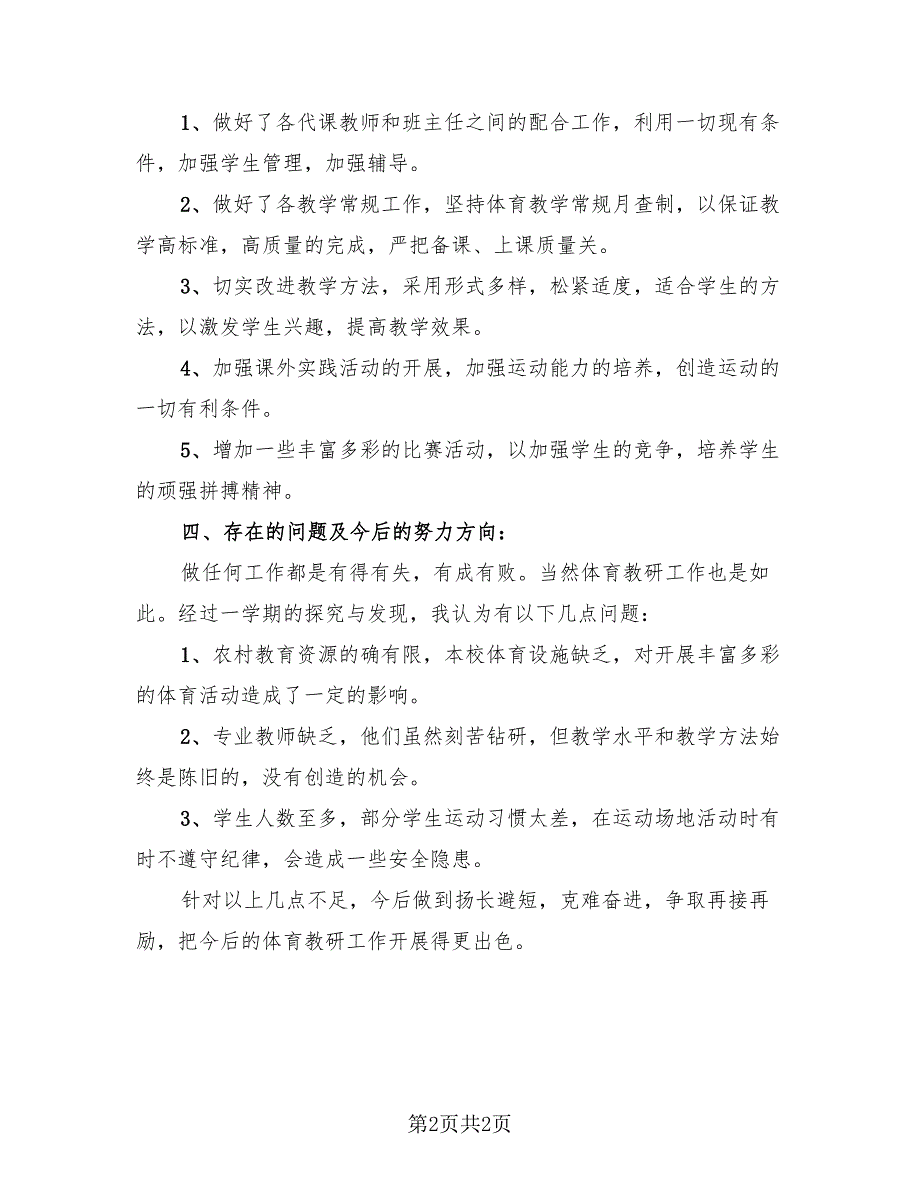 1、做好了各代课教师和班主任之间的配合工作，利用一切现有条
件，加强学生管理，加强辅导。
2、做好了各教学常规工作，坚持体育教学常规月查制，以保证教
学高标准，高质量的完成，严把备课、上课质量关。
3、切实改进教学方法，采用形式多样，松紧适度，适合学生的方
法，以激发学生兴趣，提高教学效果。
4、加强课外实践活动的开展，加强运动能力的培养，创造运动的
一切有利条件。
5、增加一些丰富多彩的比赛活动，以加强学生的竞争，培养学生
的顽强拼搏精神。
四、存在的问题及今后的努力方向：
做任何工作都是有得有失，有成有败。当然体育教研工作也是如
此。经过一学期的探究与发现，我认为有以下几点问题：
1、农村教育资源的确有限，本校体育设施缺乏，对开展丰富多彩
的体育活动造成了一定的影响。
2、专业教师缺乏，他们虽然刻苦钻研，但教学水平和教学方法始
终是陈旧的，没有创造的机会。
3、学生人数至多，部分学生运动习惯太差，在运动场地活动时有
时不遵守纪律，会造成一些安全隐患。
针对以上几点不足，今后做到扬长避短，克难奋进，争取再接再
励，把今后的体育教研工作开展得更出色。
第2页共2页